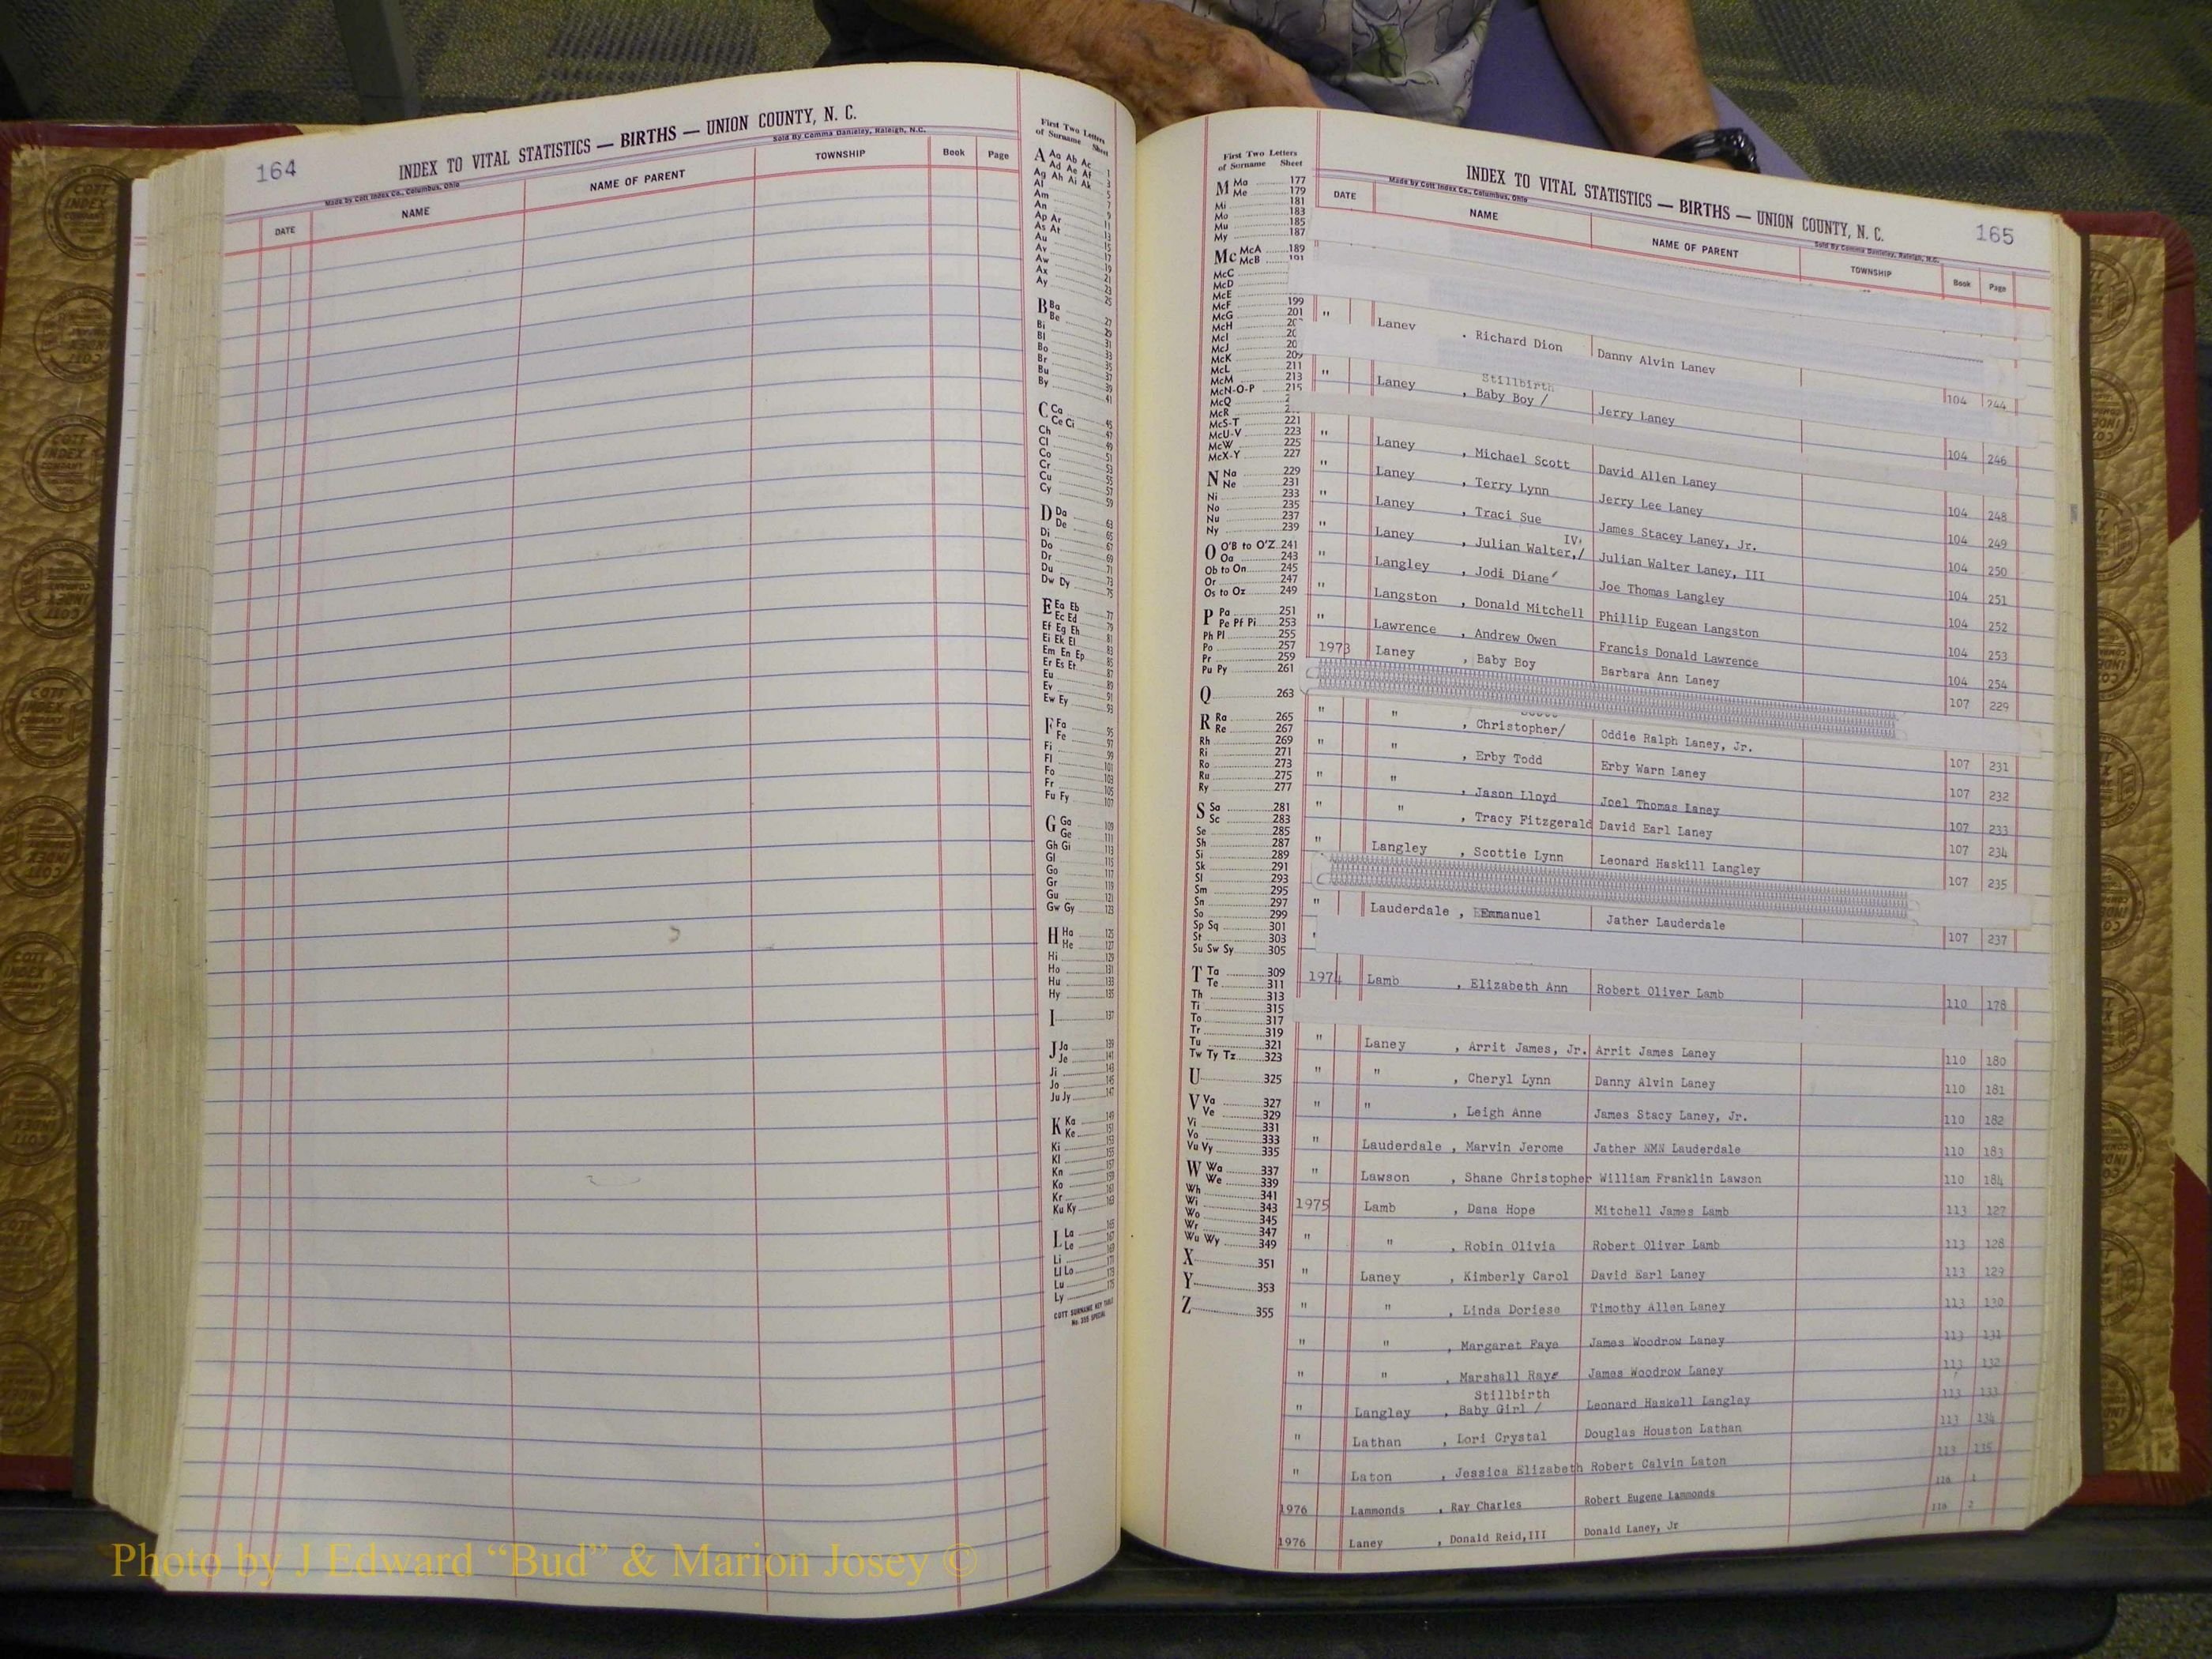 164
INDEX TO VITAL STATISTICS — BIRTHS — UNION COUNTY, N. C.
Made by Cott Index Co., Columbus, Ohio
Sold By Comma Danieley, Raleigh, N.C.
DATE NAME NAME OF PARENT TOWNSHIP Book Page
First Two Letters
of Surname Sheet
A Aa Ab Ac 1
Ad Ae Af 3
Ag Ah Ai Ak 5
Al 7
Am 9
An 11
Ap Ar 13
As At 15
Au 17
Av 19
Aw 21
Ax 23
Ay 25
B Ba 27
Be 29
Bi 31
Bl 33
Bo 35
Br 37
Bu 39
By 41
C Ca 45
Ce Ci 47
Ch 49
Cl 51
Co 53
Cr 55
Cu 57
Cy 59
D Da 63
De 65
Di 67
Do 69
Dr 71
Du 73
Dw Dy 75
E Ea Eb 77
Ec Ed 79
Ef Eg Eh 81
Ei Ek El 83
Em En Ep 85
Er Es Et 87
Eu 89
Ev 91
Ew Ey 93
F Fa 95
Fe 97
Fi 99
Fl 101
Fo 103
Fr 105
Fu Fy 107
G Ga 109
Ge 111
Gh Gi 113
Gl 115
Go 117
Gr 119
Gu 121
Gw Gy 123
H Ha 125
He 127
Hi 129
Ho 131
Hu 133
Hy 135
I 137
J Ja 139
Je 141
Ji 143
Jo 145
Ju Jy 147
K Ka 149
Ke 151
Ki 153
Kl 155
Kn 157
Ko 159
Kr 161
Ku Ky 163
L La 165
Le 167
Li 169
Ll Lo 171
Lu 173
Ly 175
COTT SURNAME KEY TABLE
No. 355 SPECIAL
First Two Letters
of Surname Sheet
M Ma 177
Me 179
Mi 181
Mo 183
Mu 185
My 187
Mc McA 189
McB 191
McC
McD
McE
McF 199
McG 201
McH
McI
McJ
McK 209
McL 211
McM 213
McN-O-P 215
McQ
McR
McS-T 221
McU-V 223
McW 225
McX-Y 227
N Na 229
Ne 231
Ni 233
No 235
Nu 237
Ny 239
O O'B to O'Z 241
Oa 243
Ob to On 245
Or 247
Os to Oz 249
P Pa 251
Pe Pf Pi 253
Ph Pl 255
Po 257
Pr 259
Pu Py 261
Q 263
R Ra 265
Re 267
Rh 269
Ri 271
Ro 273
Ru 275
Ry 277
S Sa 281
Sc 283
Se 285
Sh 287
Si 289
Sk 291
Sl 293
Sm 295
Sn 297
So 299
Sp Sq 301
St 303
Su Sw Sy 305
T Ta 309
Te 311
Th 313
Ti 315
To 317
Tr 319
Tu 321
Tw Ty Tz 323
U 325
V Va 327
Ve 329
Vi 331
Vo 333
Vu Vy 335
W Wa 337
We 339
Wh 341
Wi 343
Wo 345
Wr 347
Wu Wy 349
X 351
Y 353
Z 355
INDEX TO VITAL STATISTICS — BIRTHS — UNION COUNTY, N. C. 165
Made by Cott Index Co., Columbus, Ohio
Sold By Comma Danieley, Raleigh, N.C.
DATE NAME NAME OF PARENT TOWNSHIP Book Page
" Laney , Richard Dion Danny Alvin Laney 104 244
Stillbirth
" Laney , Baby Boy / Jerry Laney 104 246
" Laney , Michael Scott David Allen Laney 104 248
" Laney , Terry Lynn Jerry Lee Laney 104 249
" Laney , Traci Sue James Stacey Laney, Jr. 104 250
IV
" Laney , Julian Walter,/ Julian Walter Laney, III 104 251
" Langley , Jodi Diane Joe Thomas Langley 104 252
" Langston , Donald Mitchell Phillip Eugean Langston 104 253
" Lawrence , Andrew Owen Francis Donald Lawrence 104 254
1973 Laney , Baby Boy Barbara Ann Laney 107 229
" " , Christopher/ Oddie Ralph Laney, Jr. 107 231
" " , Erby Todd Erby Warn Laney 107 232
" " , Jason Lloyd Joel Thomas Laney 107 233
" " , Tracy Fitzgerald David Earl Laney 107 234
" Langley , Scottie Lynn Leonard Haskill Langley 107 235
" Lauderdale , Emmanuel Jather Lauderdale 107 237
1974 Lamb , Elizabeth Ann Robert Oliver Lamb 110 178
" Laney , Arrit James, Jr. Arrit James Laney 110 180
" " , Cheryl Lynn Danny Alvin Laney 110 181
" " , Leigh Anne James Stacy Laney, Jr. 110 182
" Lauderdale , Marvin Jerome Jather NMN Lauderdale 110 183
" Lawson , Shane Christopher William Franklin Lawson 110 184
1975 Lamb , Dana Hope Mitchell James Lamb 113 127
" " , Robin Olivia Robert Oliver Lamb 113 128
" Laney , Kimberly Carol David Earl Laney 113 129
" " , Linda Doriese Timothy Allen Laney 113 130
" " , Margaret Faye James Woodrow Laney 113 131
" " , Marshall Raye James Woodrow Laney 113 132
Stillbirth
" Langley , Baby Girl / Leonard Haskell Langley 113 133
" Lathan , Lori Crystal Douglas Houston Lathan 113 134
" Laton , Jessica Elizabeth Robert Calvin Laton 113 135
1976 Lammonds , Ray Charles Robert Eugene Lammonds 116 1
1976 Laney , Donald Reid,III Donald Laney, Jr 116 2
Photo by J Edward “Bud” & Marion Josey ©